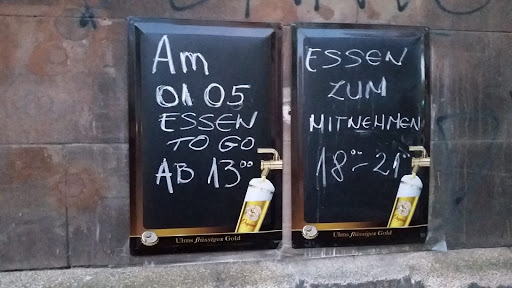 Am
01 05
ESSEN
TO GO
AB 13⁰⁰
Ulms flüssiges Gold
ESSEN
ZUM
MITNEHMEN
18⁰⁰-21⁰⁰
Ulms flüssiges Gold